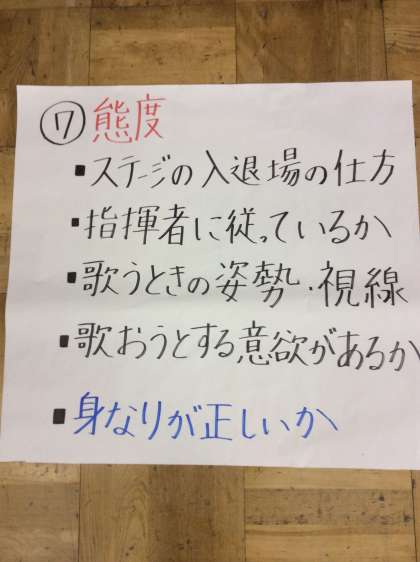 ⑦態度
▪ステージの入退場の仕方
▪指揮者に従っているか
▪歌うときの姿勢・視線
▪歌おうとする意欲があるか
▪身なりが正しいか